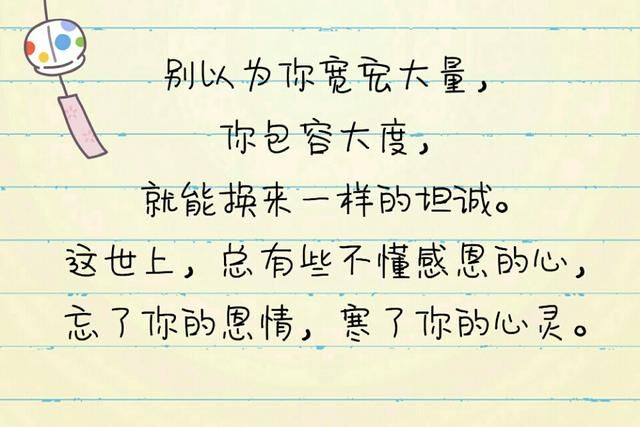 别以为你宽宏大量，
你包容大度，
就能换来一样的坦诚。
这世上，总有些不懂感恩的心，
忘了你的恩情，寒了你的心灵。